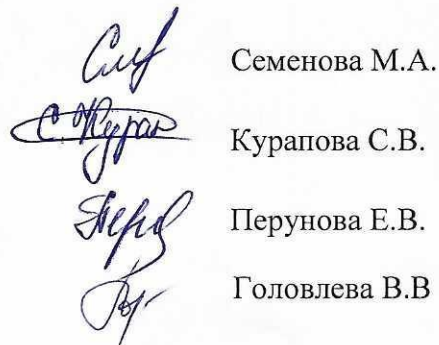 Семенова М.А.
С. Курап Курапова С.В.
Перунова Е.В.
Головлева В.В